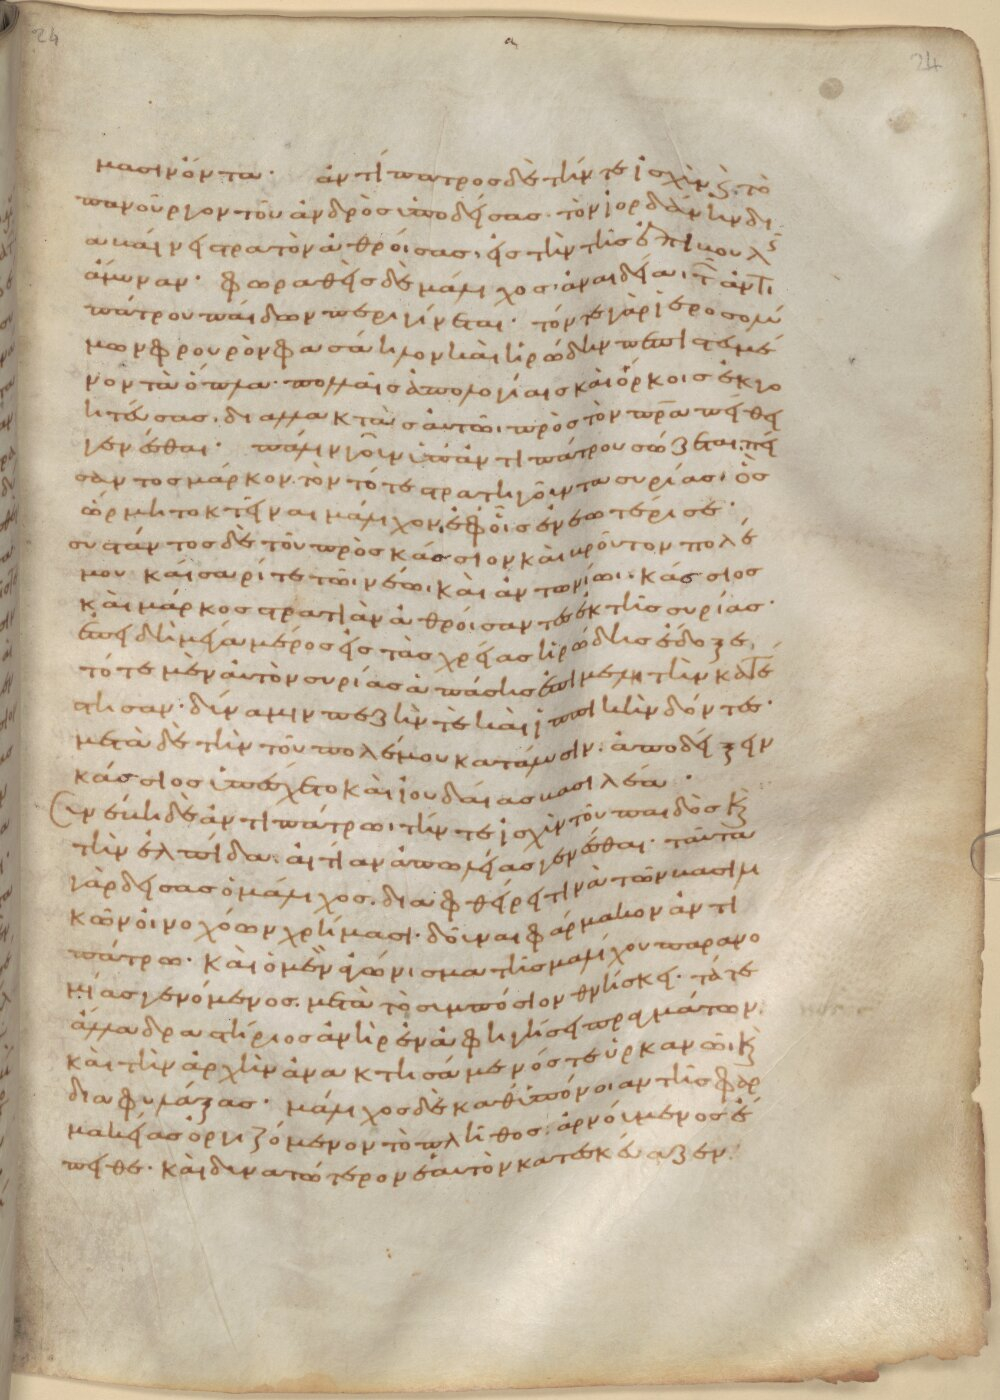 μασιν ὄντα· ἀντιπατρος δὲ τήν τε ἰσχὺν καὶ τὸ
πανοῦργον τοῦ ἀνδρὸς ὑποδείσας· τὸν ἰορδάνην δι
αβαίνει στρατὸν ἀθροίσας· εἰς τὴν τῆς ἐπιβουλῆς
ἄμυναν· φωραθεὶς δὲ μάλιχος· ἀναιδεία· τῶν ἀντι
πάτρου παίδων περιγίνεται· τόν τε γὰρ ἱεροσολύ
μων φρουρὸν φασάηλον καὶ ἡρώδην πεπιστευμέ
νον τὰ ὅπλα· πολλαῖς ἀπολογίαις καὶ ὅρκοις ἐκγο
ητεύσας· διαλλακτὰς αὐτῶι πρὸς τὸν πρᾶ πείθει
γενέσθαι· πάλιν γοῦν ὑπὸ ἀντιπάτρου σώζεται· πεί
σαντος μάρκον τὸν τότε στρατηγοῦντα συρίας· ὃς
ὥρμητο κτεῖναι μάλιχον, ἐφοἷς ἐνεωτέρισε·
συστάντος δὲ τοῦ πρὸς κάσσιον καὶ βροῦτον πολέ
μου καίσαρί τε τῶι νέωι· καὶ ἀντωνίωι· κάσσιος
καὶ μάρκος στρατιὰν ἀθροίσαντες ἐκ τῆς συρίας·
ἐπειδὴ μέγα μέρος εἰς τὰς χρείας ἡρώδης ἔδοξε,
τότε μὲν αὐτὸν συρίας ἁπάσης ἐπιμελητὴν κατέ
στησαν· δύναμιν πεζήν τε καὶ ἱππικὴν δόντες·
μετὰ δὲ τὴν τοῦ πολέμου κατάλυσιν· ἀποδείξειν
κάσσιος ὑπέσχετο καὶ ἰουδαίας βασιλέα·
συνέβη δὲ ἀντιπάτρωι τήν τε ἰσχὺν τοῦ παιδὸς καὶ
τὴν ἐλπίδα· αἰτίαν ἀπωλείας γενέσθαι· ταῦτα
γὰρ δείσας ὁ μάλιχος· διαφθείρει τινὰ τῶν βασιλι
κῶν οἰνοχόων χρήμασι· δοῦναι φάρμακον ἀντι
πάτρω· καὶ ὁ μὲν ἀγώνισμα τῆς μαλίχου παρανο
μίας γενόμενος· μετὰ τὸ συμπόσιον θνήσκει· τά τε
ἄλλα δραστήριος ἀνὴρ ἐν ἀφηγήσει πραγμάτων·
καὶ τὴν ἀρχὴν ἀνακτησάμενός τε ὑρκανῶι· καὶ
διαφυλάξας· μάλιχος δὲ καθ' ὑπόνοιαν τῆς φαρ
μακείας ὀργιζόμενον τὸ πλῆθος· ἀρνούμενος ἔ
πειθε· καὶ δυνατώτερον ἑαυτὸν κατεσκεύαζεν·
24
24